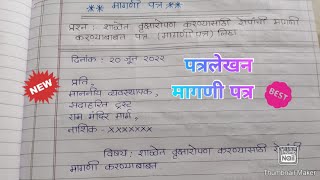 ** मागणी पत्र **
प्रश्न : शाळेत वृक्षारोपण करण्यासाठी रोपांची मागणी
करण्याबाबत पत्र (मागणी पत्र) लिहा
दिनांक : २० जून २०२२
प्रति,
माननीय व्यवस्थापक,
सदाहरित ट्रस्ट
राम मंदिर मार्ग,
नाशिक - xxxxxxx
विषय : शाळेत वृक्षारोपण करण्यासाठी
मागणी करण्याबाबत
NEW
पत्रलेखन
मागणी पत्र
BEST
Thumbnail Maker